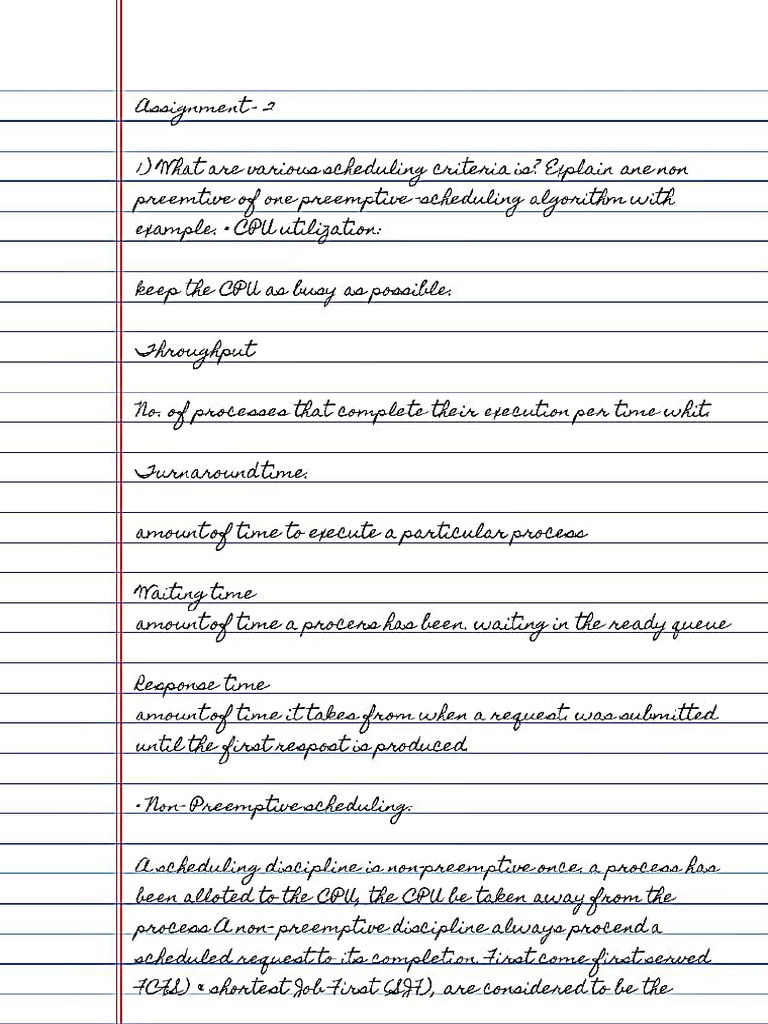 Assignment-2
1) What are various scheduling criteria is? Explain ane non
preemtive of one preemptive-scheduling algorithm with
example. • CPU utilization:
keep the CPU as busy as possible.
Throughput
No. of processes that complete their execution per time whit.
Turnaround time.
amount of time to execute a particular process
Waiting time
amount of time a procers has been. waiting in the ready queue
Response time
amount of time it takes from when a request. was submitted
until the first respost is produced.
• Non-Preemptive scheduling:
A scheduling discipline is nonpreemptive once. a process has
been alloted to the CPU, the CPU be taken away from the
process A non-preemptive discipline always procend a
scheduled request to its completion. First come first served
FCFS) & shortest Job First (SJF), are considered to be the